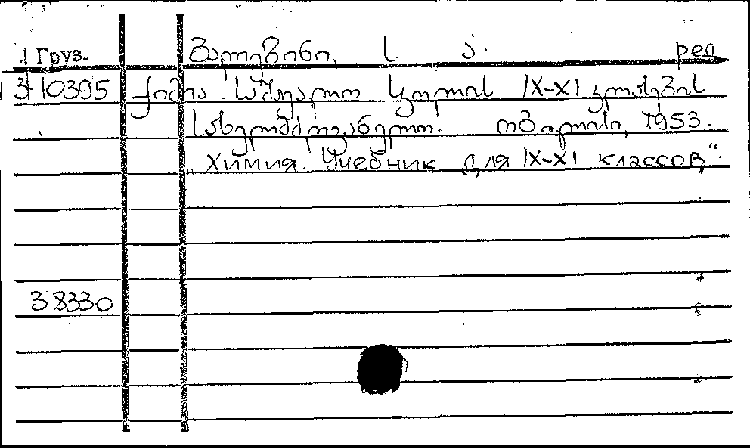 1 Груз. ბალეზინი, ს ა. ред
3-10395 ქიმია საშუალო სკოლის IX-XI კლასების
სახელმძღვანელო. თბილისი, 1953.
„Химия. Учебник для IX-XI классов“.
38330